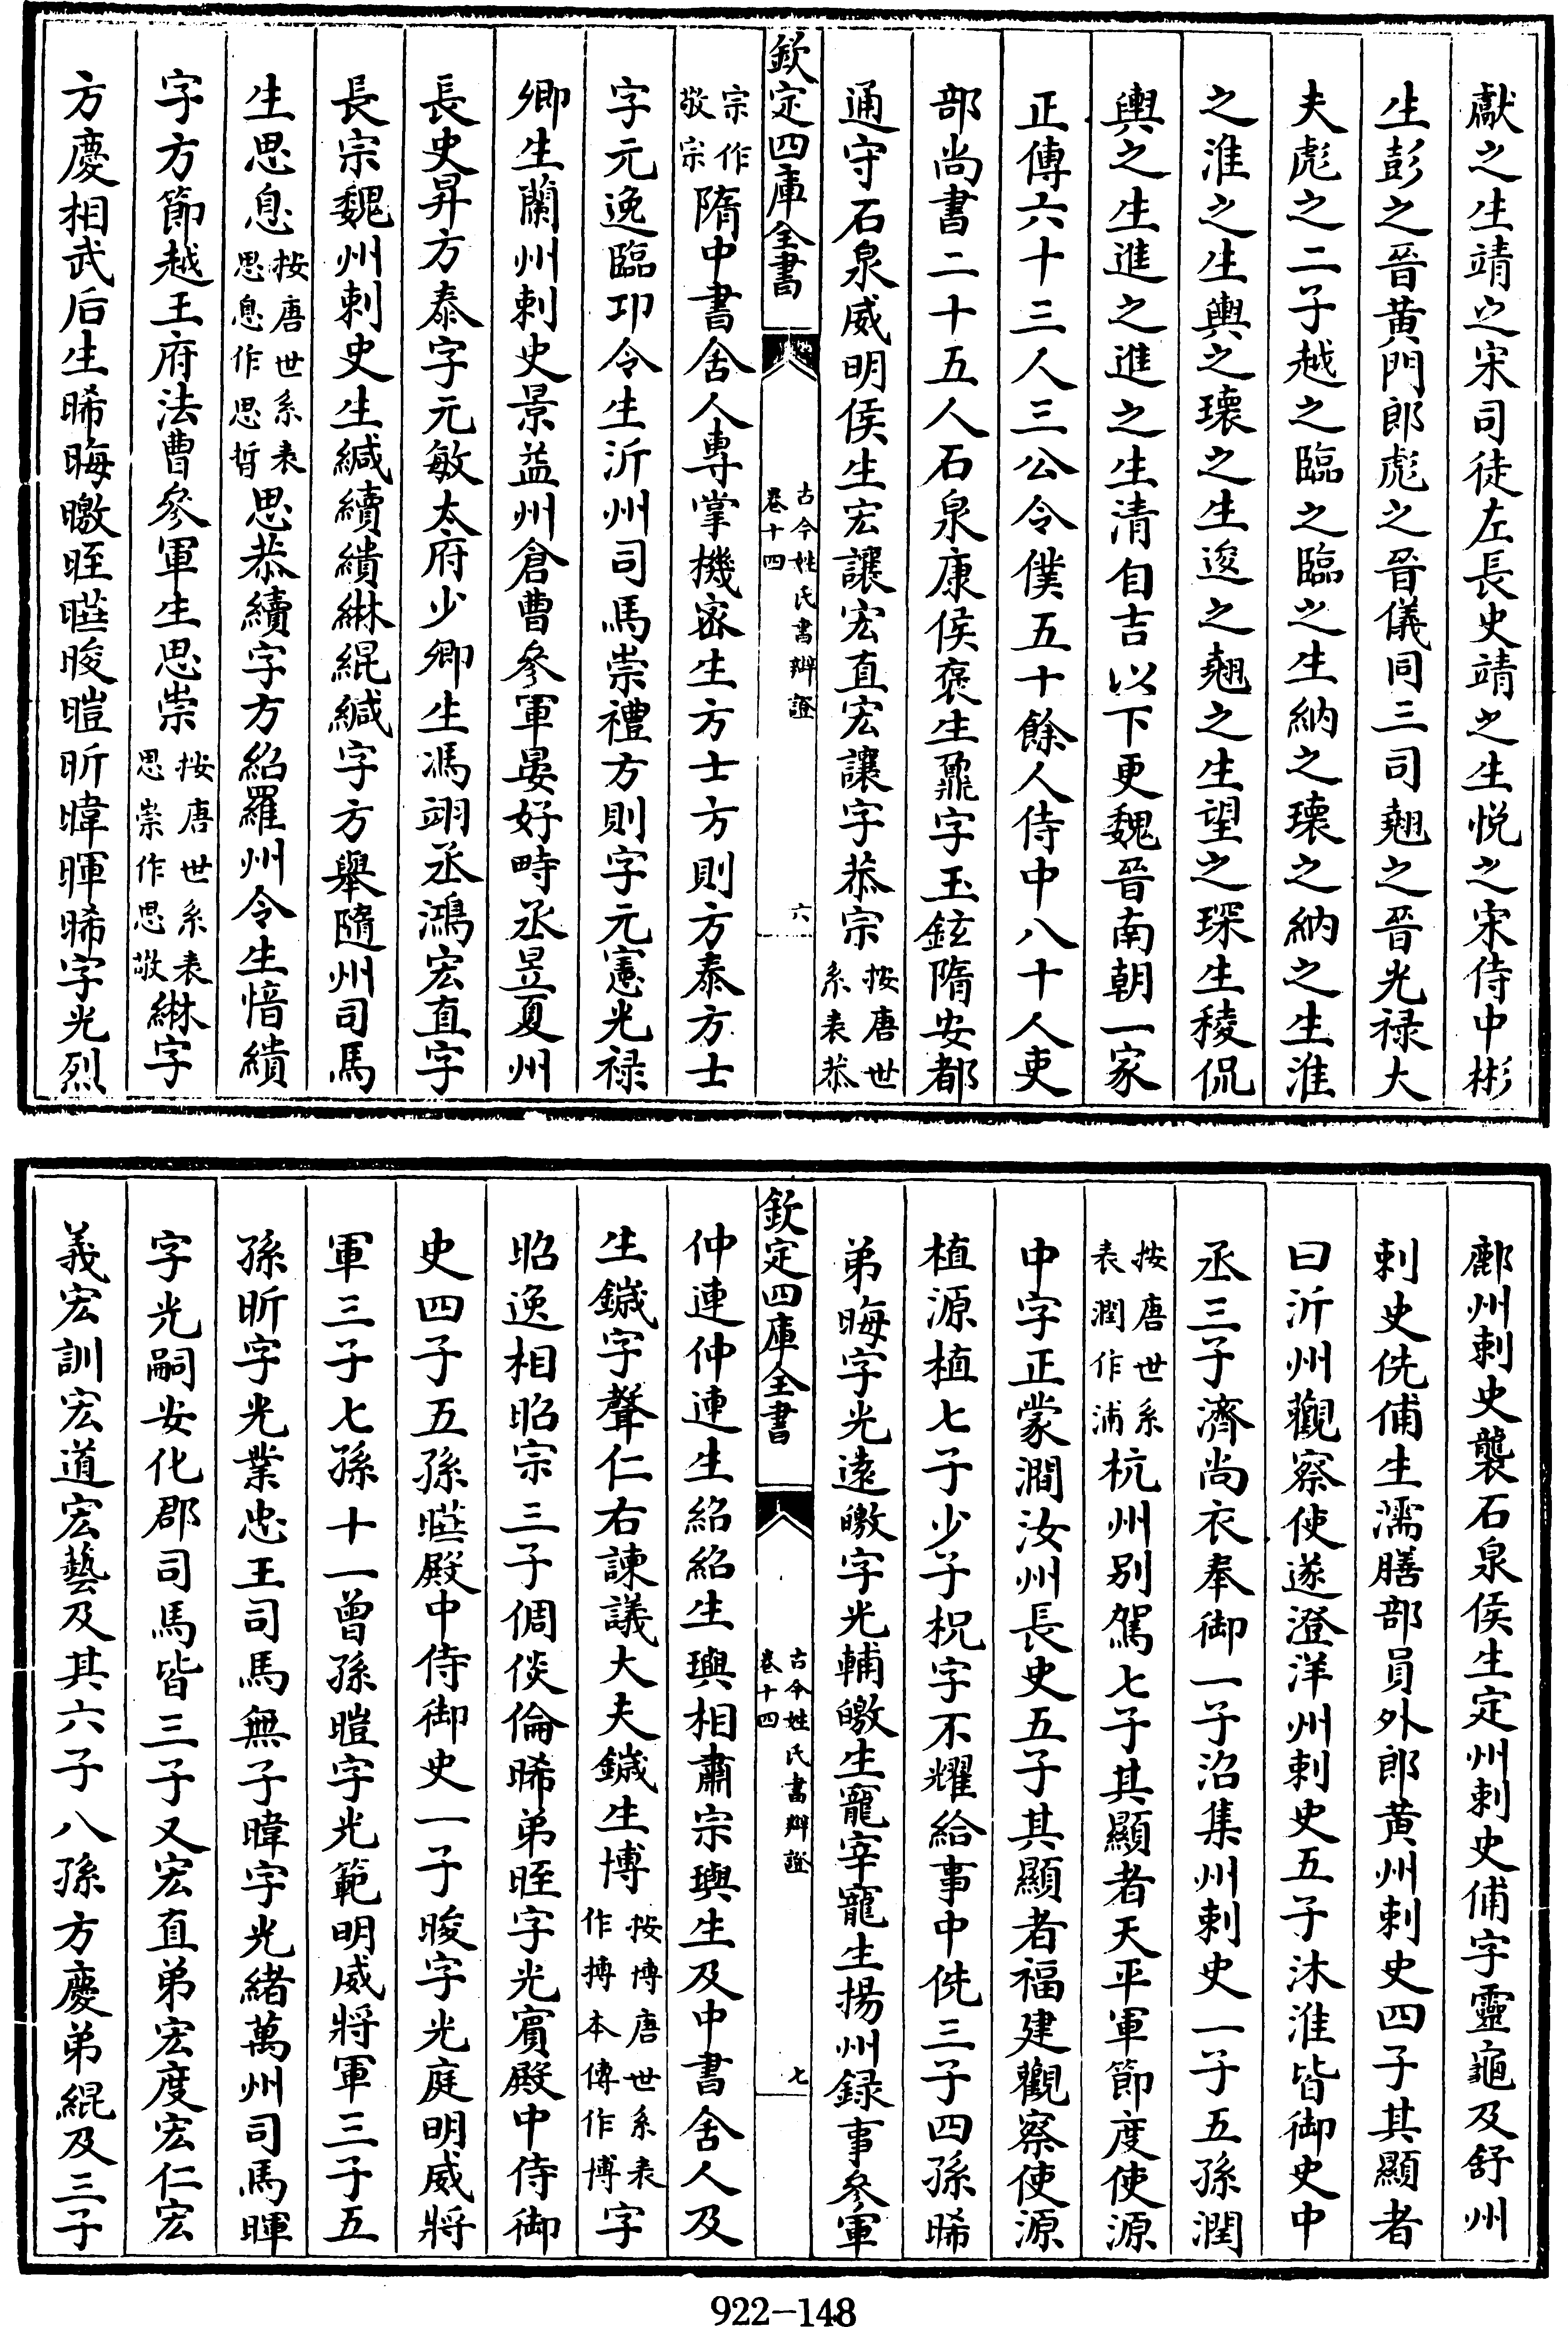 獻之生靖之宋司徒左長史靖之生悦之宋侍中彬
生彭之晉黄門郎彪之晉儀同三司翹之晉光禄大
夫彪之二子越之臨之臨之生納之瓌之納之生淮
之淮之生輿之瓌之生逡之翹之生望之琛生稜侃
輿之生進之進之生清自吉以下更魏晉南朝一家
正傳六十三人三公令僕五十餘人侍中八十人吏
部尚書二十五人石泉康侯褒生鼐字玉鉉隋安都
通守石泉威明侯生宏讓宏直宏讓字恭宗按唐世系表恭
欽定四庫全書 古今姓氏書辯證 卷十四 六
宗作敬宗隋中書舍人專掌機密生方士方則方泰方士
字元逸臨卭令生沂州司馬崇禮方則字元憲光禄
卿生蘭州刺史景益州倉曹參軍晏好畤丞昱夏州
長史昇方泰字元敏太府少卿生馮翊丞鴻宏直字
長宗魏州刺史生緘續繢綝緄緘字方舉隨州司馬
生思息按唐世系表思息作思哲思恭續字方紹羅州令生愔繢
字方節越王府法曹參軍生思崇按唐世系表思崇作思敬綝字
方慶相武后生晞晦曒晊㬢晙暟昕暐暉晞字光烈
鄜州刺史襲石泉侯生定州刺史俌字靈龜及舒州
刺史侁俌生濡膳部員外郎黄州刺史四子其顯者
曰沂州觀察使遂澄洋州刺史五子沐淮皆御史中
丞三子濟尚衣奉御一子沼集州刺史一子五孫潤
按唐世系表潤作浦杭州别駕七子其顯者天平軍節度使源
中字正蒙澗汝州長史五子其顯者福建觀察使源
植源植七子少子柷字不耀給事中侁三子四孫晞
弟晦字光遠曒字光輔曒生寵宰寵生揚州録事參軍
仲連仲連生紹紹生璵相肅宗璵生及中書舍人及
生鍼字聲仁右諫議大夫鍼生博按博唐世系表作摶本傳作博字
昭逸相昭宗三子倜倓倫晞弟晊字光賓殿中侍御
史四子五孫㬢殿中侍御史一子晙字光庭明威將
軍三子七孫十一曾孫暟字光範明威將軍三子五
孫昕字光業忠王司馬無子暐字光緒萬州司馬暉
字光嗣安化郡司馬皆三子又宏直弟宏度宏仁宏
義宏訓宏道宏藝及其六子八孫方慶弟緄及三子
欽定四庫全書 古今姓氏書辯證 卷十四 七
922-148